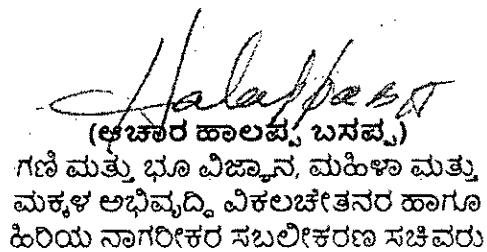 Halappa B A
(ಆಚಾರ ಹಾಲಪ್ಪ ಬಸಪ್ಪ)
ಗಣಿ ಮತ್ತು ಭೂ ವಿಜ್ಞಾನ, ಮಹಿಳಾ ಮತ್ತು
ಮಕ್ಕಳ ಅಭಿವೃದ್ಧಿ ವಿಕಲಚೇತನರ ಹಾಗೂ
ಹಿರಿಯ ನಾಗರೀಕರ ಸಬಲೀಕರಣ ಸಚಿವರು